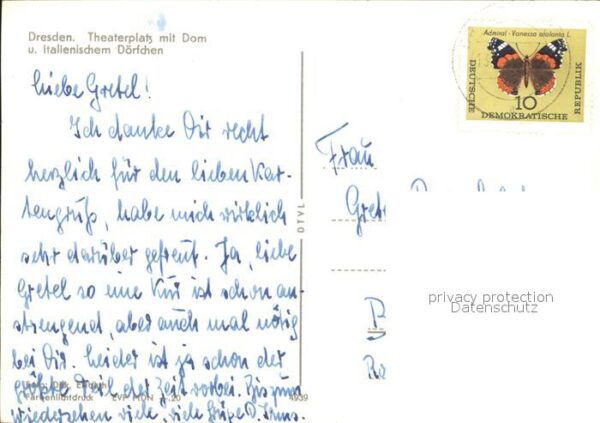 Dresden. Theaterplatz mit Dom
u. Italienischem Dörfchen
Liebe Gretel!
Ich danke Dir recht
herzlich für den lieben Kar-
tengruß, habe mich wirklich
sehr darüber gefreut. Ja, liebe
Gretel so eine Kur ist schon an-
strengend, aber auch mal nötig
bei Dir. Leider ist ja schon der
größte Teil der Zeit vorbei. Bis zum
Wiedersehen viele, viele Grüße D.
Farbenlichtdruck EVP MDN -.20 4939
DTVL
Admiral - Vanessa atalanta L.
DEUTSCHE
DEMOKRATISCHE
REPUBLIK
10
Frau
privacy protection
Datenschutz